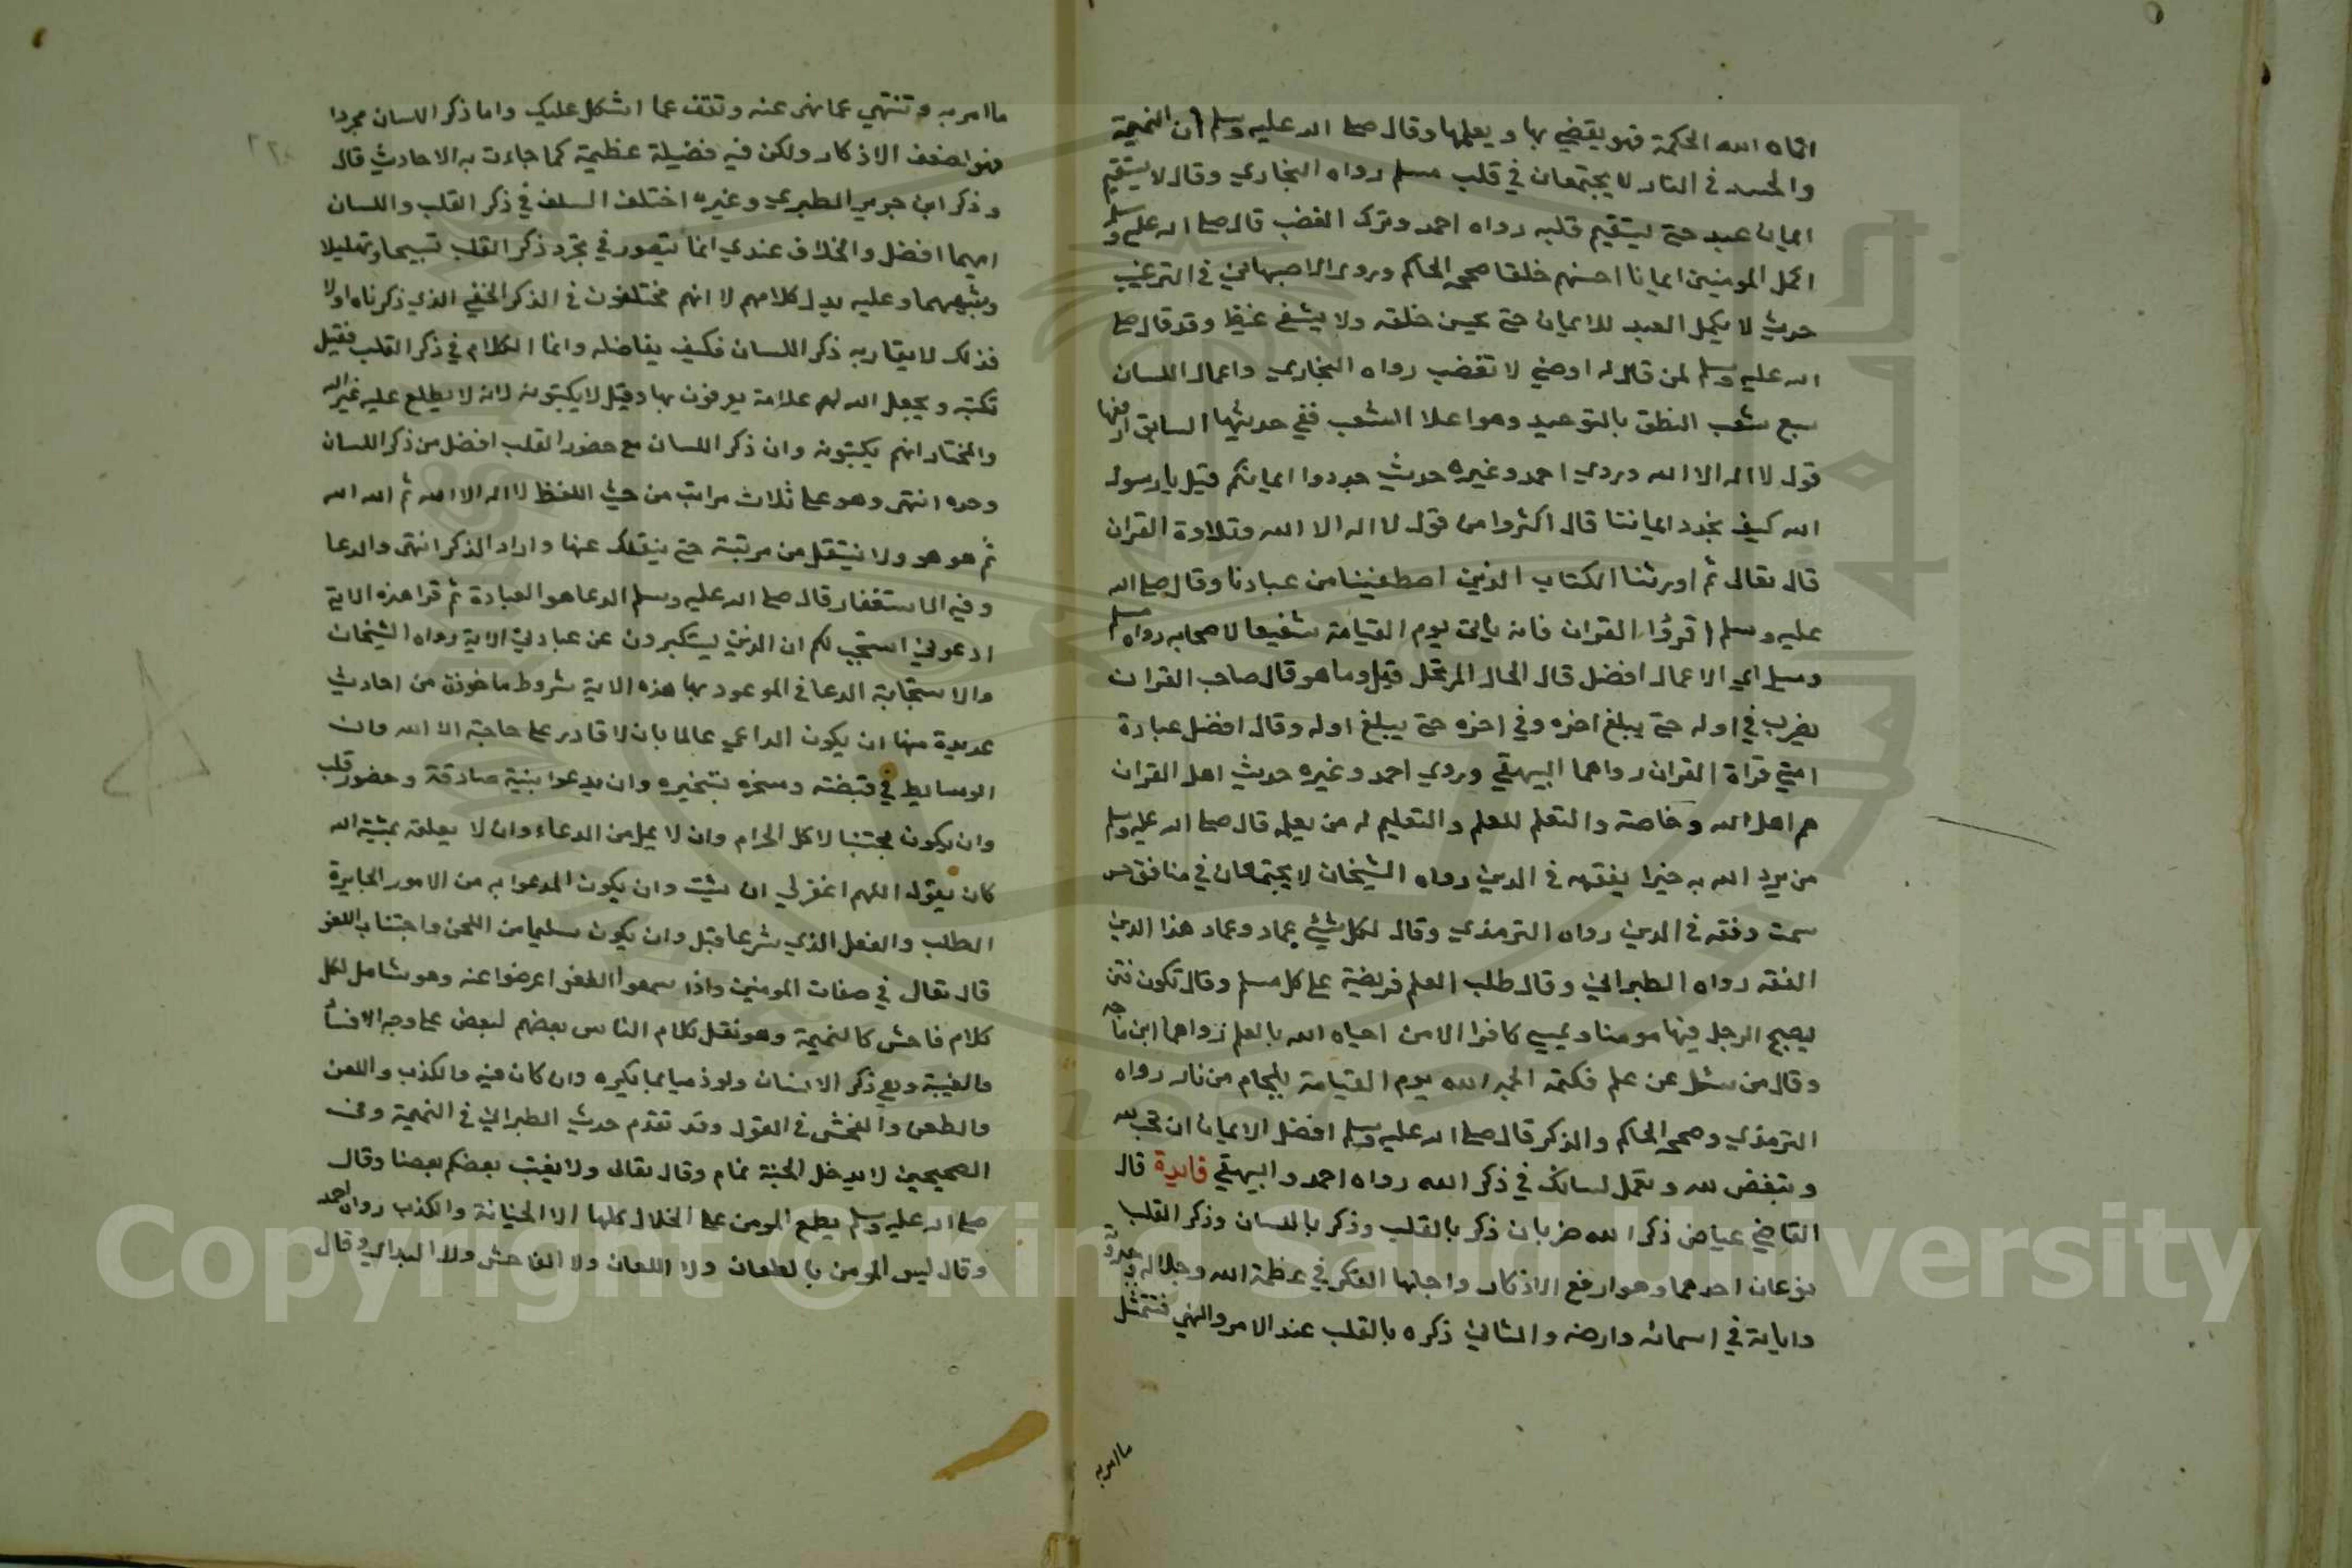 اتاه الله الحكمة فهو يقضي بها ويعلمها وقال صلى الله عليه وسلم ان النميمة
والحسد في النار لا يجتمعان في قلب مسلم رواه البخاري وقال لا يستقيم
ايمان عبد حتى يستقيم قلبه رواه احمد وترك الغضب قال صلى الله عليه وسلم
اكمل المومنين ايمانا احسنهم خلقا صححه الحاكم وروى الاصبهاني في الترغيب
حديث لا يكمل العبد للايمان حتى يحسن خلقه ولا يشفي غيظه وقد قال صلى
الله عليه وسلم لمن قال له اوصني لا تغضب رواه البخاري واعمال اللسان
سبع شعب النطق بالتوحيد وهو اعلا الشعب ففي حديثها السابق ارفعها
قول لا اله الا الله وروى احمد وغيره حديث جددوا ايمانكم قيل يا رسول
الله كيف نجدد ايماننا قال اكثروا من قول لا اله الا الله وتلاوة القران
قال تعالى ثم اورثنا الكتاب الذين اصطفينا من عبادنا وقال صلى الله
عليه وسلم اقرؤا القران فانه ياتي يوم القيامة شفيعا لاصحابه رواه مسلم
وسيل اي الاعمال افضل قال الحال المرتحل قيل وما هو قال صاحب القران
يضرب في اوله حتى يبلغ اخره وفي اخره حتى يبلغ اوله وقال افضل عبادة
امتي قراة القران رواهما البيهقي وروى احمد وغيره حديث اهل القران
هم اهل الله وخاصته والتعلم للعلم والتعليم له من يعلمه قال صلى الله عليه وسلم
من يرد الله به خيرا يفقهه في الدين رواه الشيخان لا يجتمعان في منافق حسن
سمت وفقه في الدين رواه الترمذي وقال لكل شيئ عماد وعماد هذا الدين
الفقه رواه الطبراني وقال طلب العلم فريضة على كل مسلم وقال تكون فتن
يصبح الرجل فيها مومنا ويمسي كافرا الا من احياه الله بالعلم رواهما ابن ماجه
وقال من سئل عن علم فكتمه الجمه الله يوم القيامة بلجام من نار رواه
الترمذي وصححه الحاكم والذكر قال صلى الله عليه وسلم افضل الايمان ان تحب لله
وتبغض لله وتعمل لسانك في ذكر الله رواه احمد والبيهقي فايدة قال
القاضي عياض ذكر الله ضربان ذكر بالقلب وذكر باللسان وذكر القلب
نوعان احدهما وهو ارفع الاذكار واجلها الفكر في عظمة الله وجلاله وجبروته
واياته في اسمائه وارضه والثاني ذكره بالقلب عند الامر والنهي فتمتثل
ما امر به
ما امر به وتنتهي عما نهى عنه وتقف عما اشكل عليك واما ذكر اللسان مجردا
فهو اضعف الاذكار ولكن فيه فضيلة عظيمة كما جاءت به الاحاديث قال
وذكر ابن جرير الطبري وغيره اختلف السلف في ذكر القلب واللسان
ايهما افضل والخلاف عندي انما يتصور في مجرد ذكر القلب تسبيحا وتهليلا
وشبههما وعليه يدل كلامهم لا انهم مختلفون في الذكر الخفي الذي ذكرناه اولا
فذلك لا يقاربه ذكر اللسان فكيف يفاضله وانما الكلام في ذكر القلب فقيل
تكتبه ويجعل الله لهم علامة يعرفون بها وقيل لا يكتبونه لانه لا يطلع عليه غير الله
والمختار انهم يكتبونه وان ذكر اللسان مع حضور القلب افضل من ذكر اللسان
وحده انتهى وهو على ثلاث مراتب من حيث اللفظ لا اله الا الله ثم الله الله
ثم هو هو ولا ينتقل من مرتبة حتى ينفك عنها وازاد الذكر انتهى والدعا
وفيه الاستغفار قال صلى الله عليه وسلم الدعا هو العبادة ثم قرا هذه الاية
ادعوني استجب لكم ان الذين يستكبرون عن عبادتي الاية رواه الشيخان
والاستجابة الدعا في الموعود بها هذه الاية شروط ماخوذة من احاديث
عديدة منها ان يكون الداعي عالما بان لا قادر على حاجته الا الله وان
الوسايط في قبضته ومسخره بتسخيره وان يدعوا بنية صادقة وحضور قلب
وان يكون مجتنبا لاكل الحرام وان لا يمل من الدعاء وان لا يعلقه بمشية الله
كان يقول اللهم اغفر لي ان شيت وان يكون المدعوا به من الامور الجايزة
الطلب والفعل الذي شرعا قبل وان يكون سليما من اللحن واجتناب اللغو
قال تعالى في صفات المومنين واذا سمعوا اللغو اعرضوا عنه وهو شامل لكل
كلام فاحش كالنميمة وهو نقل كلام الناس بعضهم لبعض على وجه الافساد
والغيبة وهي ذكر الانسان ولو ذميا بما يكره وان كان فيه والكذب واللعن
والطعن والفحش في القول وقد تقدم حديث الطبراني في النميمة وفي
الصحيحين لا يدخل الجنة نمام وقال تعالى ولا يغيتب بعضكم بعضا وقال
صلى الله عليه وسلم يطبع المومن على الخلال كلها الا الخيانة والكذب رواه احمد
وقال ليس المومن بالطعان ولا اللعان ولا الفاحش ولا البذاي وقال
Copyright © King Saud University
1957